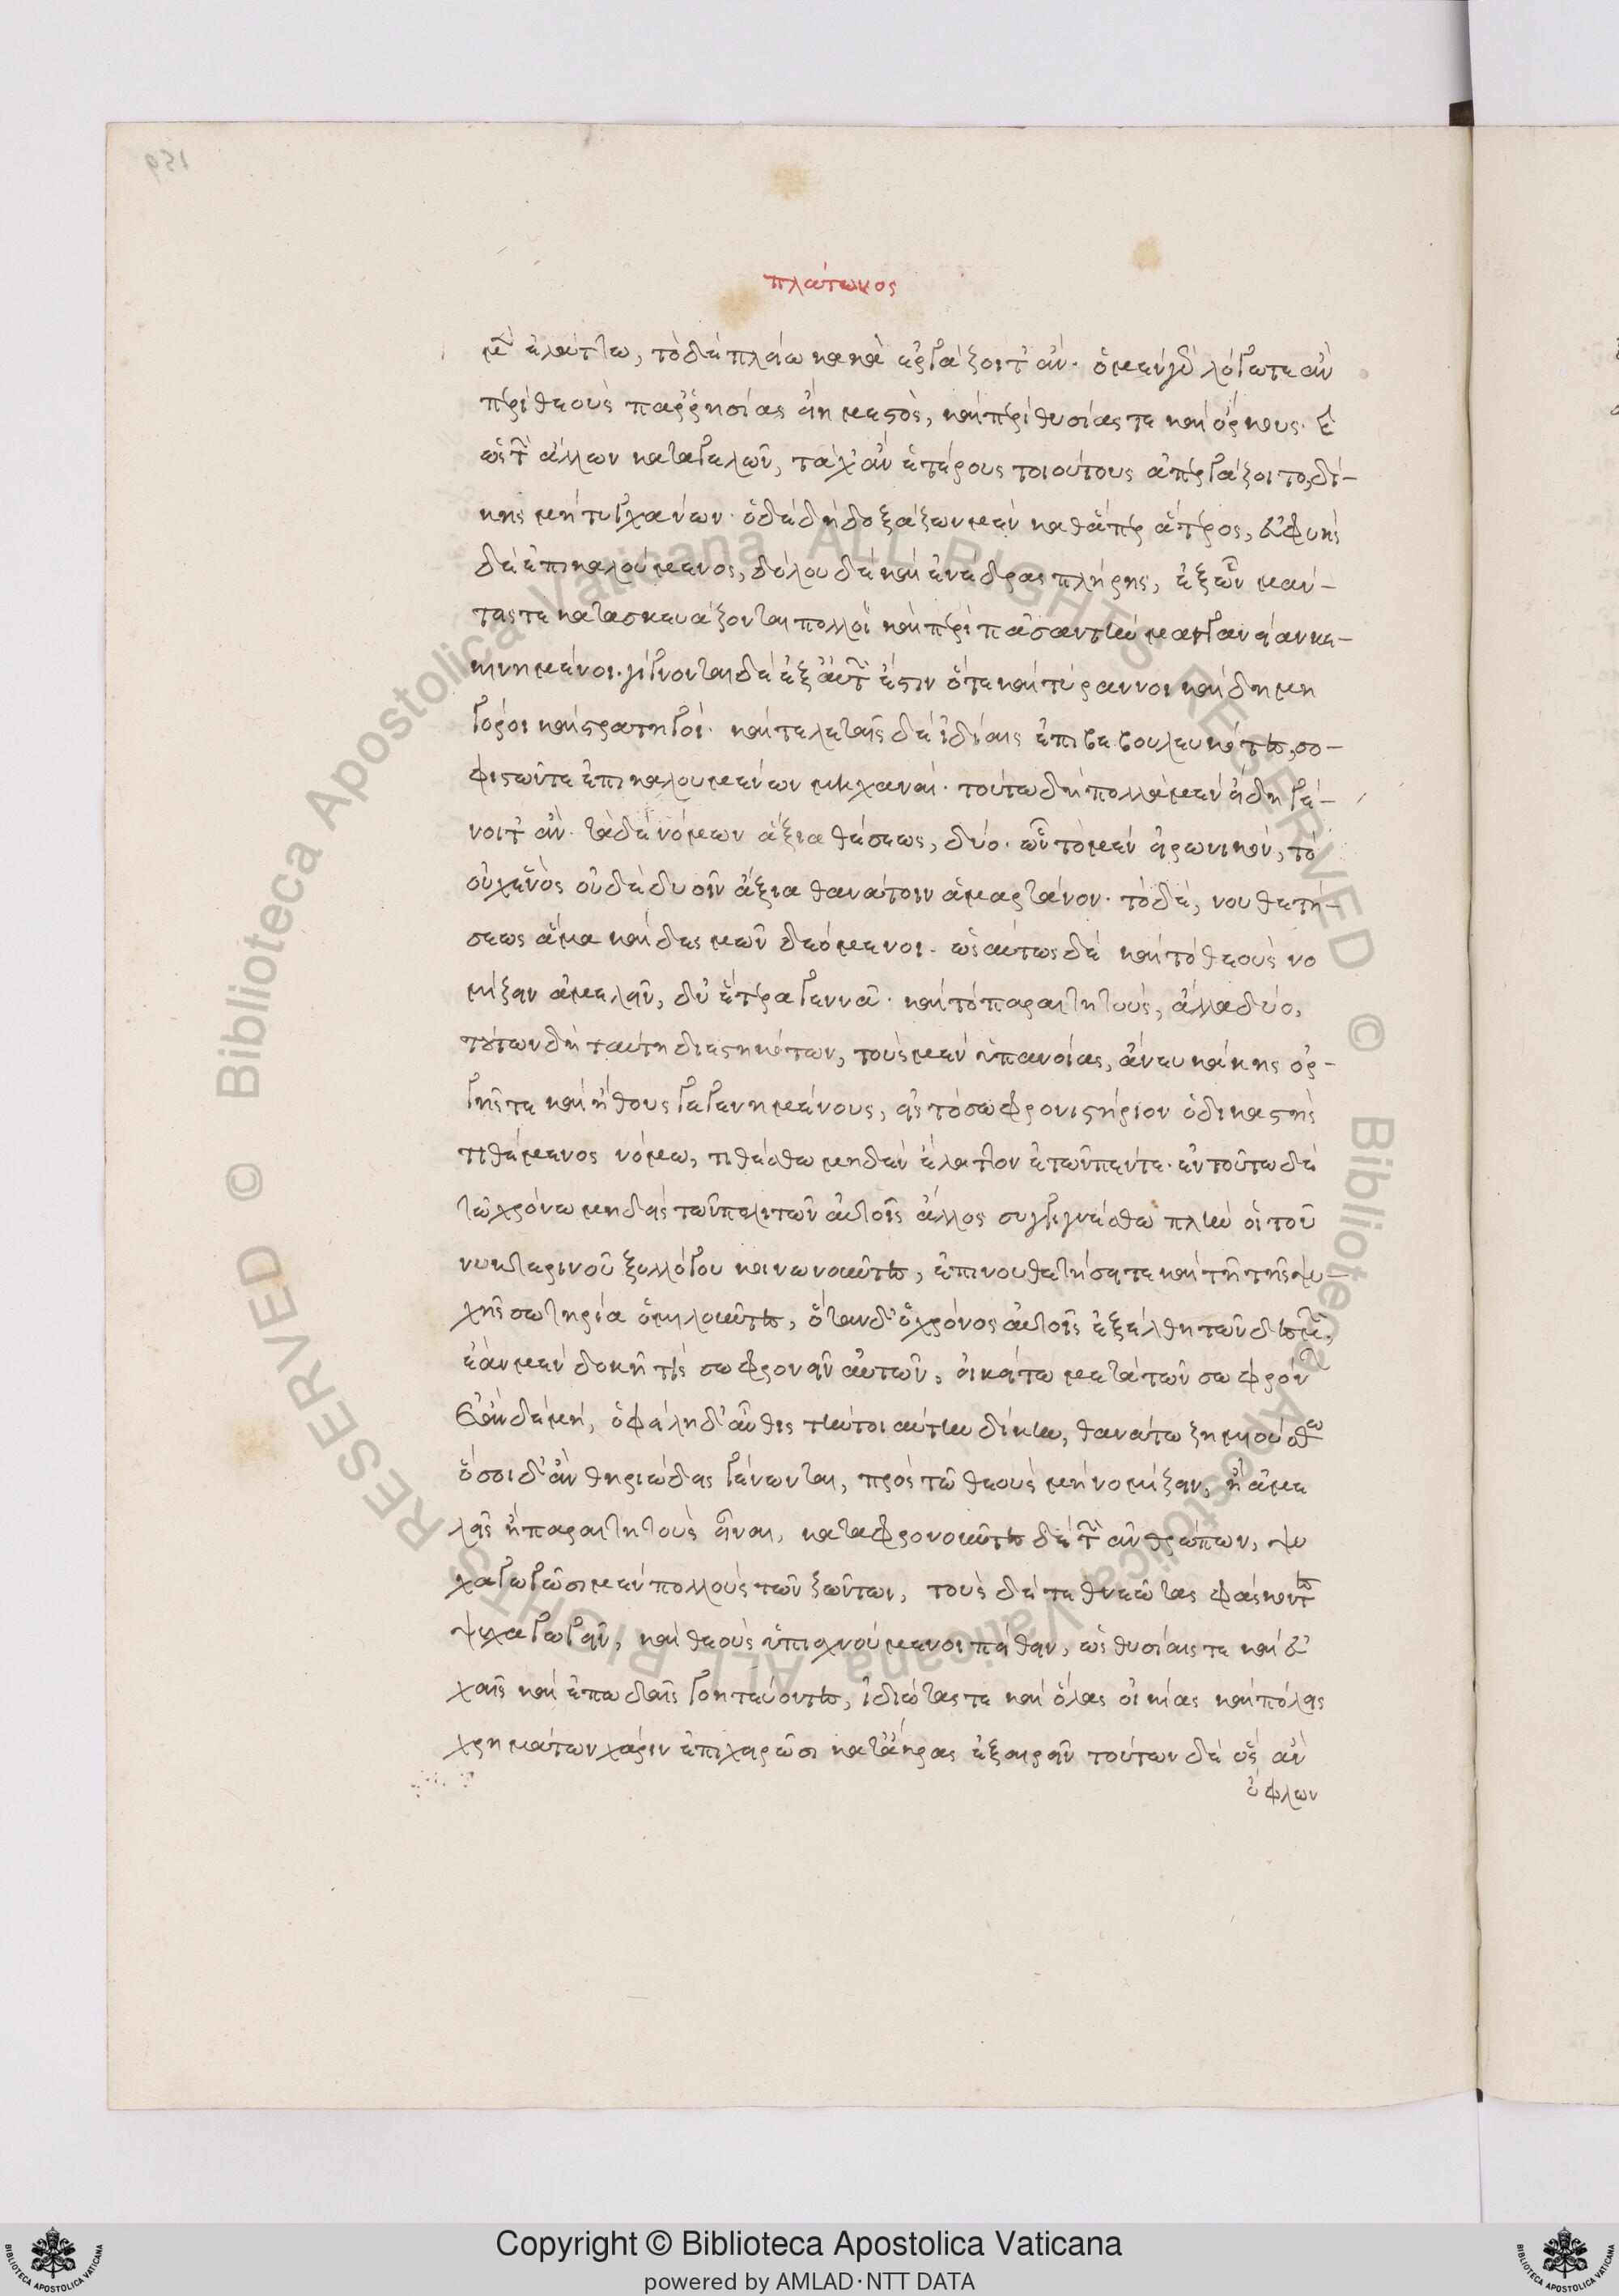 πλάτωνος
μὲν ἐλάττω, τὸ δὲ πλείω κακὰ ἐργάζοιτ' ἄν. ὁ μὲν γὰρ λόγω τε ἂν
περὶ θεοὺς παρρησίας εἴη μεστὸς, καὶ περὶ θυσίας τε καὶ ὅρκους. καὶ
ὡς τῶν ἄλλων καταγελῶν, τάχ' ἂν ἑτέρους τοιούτους ἀπεργάζοιτο, δί-
κης μὴ τυγχάνων. ὁ δὲ δὴ δοξάζων μὲν καθάπερ ἅτερος, εὐφυὴς
δὲ ἐπικαλούμενος, δόλου δὲ καὶ ἐνέδρας πλήρης, ἐξ ὧν μάν-
τεις τε κατασκευάζονται πολλοὶ καὶ περὶ πᾶσαν τὴν μαγγανείαν κε-
κινημένοι. γίγνονται δὲ ἐξ αὐτῶν ἔστιν ὅτε καὶ τύραννοι καὶ δημη
γόροι καὶ στρατηγοί. καὶ τελεταῖς δὲ ἰδίαις ἐπιβεβουλευκότες, σο-
φιστῶν τε ἐπικαλουμένων μηχαναί. τούτω δὴ πολλὰ μὲν εἴδη γέ-
νοιτ' ἄν. τὰ δὲ νόμων ἄξια θέσεως, δύο. ὧν τὸ μὲν εἰρωνικὸν, τὸ
οὐχ ἑνὸς οὐδὲ δυοῖν ἄξια θανάτοιν ἁμαρτάνον. τὸ δὲ, νουθετή-
σεως ἅμα καὶ δεσμῶν δεόμενοι. ὡσαύτως δὲ καὶ τὸ θεοὺς νο
μίζειν ἀμελεῖν, δύ' ἕτερα γεννᾶ. καὶ τὸ παραιτητοὺς, ἄλλα δύο.
τούτων δὴ ταύτη διεστηκότων, τοὺς μὲν ὑπ' ἀνοίας, ἄνευ κάκης ὀρ-
γῆς τε καὶ ἤθους γεγενημένους, εἰς τὸ σωφρονιστήριον ὁ δικαστὴς
τιθέμενος νόμω, τιθέσθω μηδὲν ἔλαττον ἐτῶν πέντε. ἐν τούτω δὲ
τῶ χρόνω μηδεὶς τῶν πολιτῶν αὐτοῖς ἄλλος συγγιγνέσθω πλὴν οἱ τοῦ
νυκτερινοῦ ξυλλόγου κοινωνοῦντες, ἐπὶ νουθετήσει τε καὶ τῆ τῆς ψυ-
χῆς σωτηρία ὁμιλοῦντες, ὅταν δ' ὁ χρόνος αὐτοῖς ἐξέλθη τῶν δεσμῶν,
ἐὰν μὲν δοκῆ τίς σωφρονεῖν αὐτῶν, οἰκείτω μετὰ τῶν σωφρόνων
ἐὰν δὲ μή, ὀφείλη δ' αὖθις τὴν τοιαύτην δίκην, θανάτω ζημιούσθω
ὅσοι δ' ἂν θηριώδεις γένωνται, πρὸς τῶ θεοὺς μὴ νομίζειν, ἢ ἀμε
λεῖς ἢ παραιτητοὺς εἶναι, καταφρονοῦντες δὲ τῶν ἀνθρώπων, ψυ
χαγωγῶσι μὲν πολλοὺς τῶν ζώντων, τοὺς δὲ τεθνεῶτας φάσκοντες
ψυχαγωγεῖν, καὶ θεοὺς ὑπισχνούμενοι πείθειν, ὡς θυσίαις τε καὶ εὐ
χαῖς καὶ ἐπωδαῖς γοητεύοντες, ἰδιώτας τε καὶ ὅλας οἰκίας καὶ πόλεις
χρημάτων χάριν ἐπιχειρῶσι κατάκρας ἐξαιρεῖν τούτων δὲ ὃς ἂν
ὀφλων
159